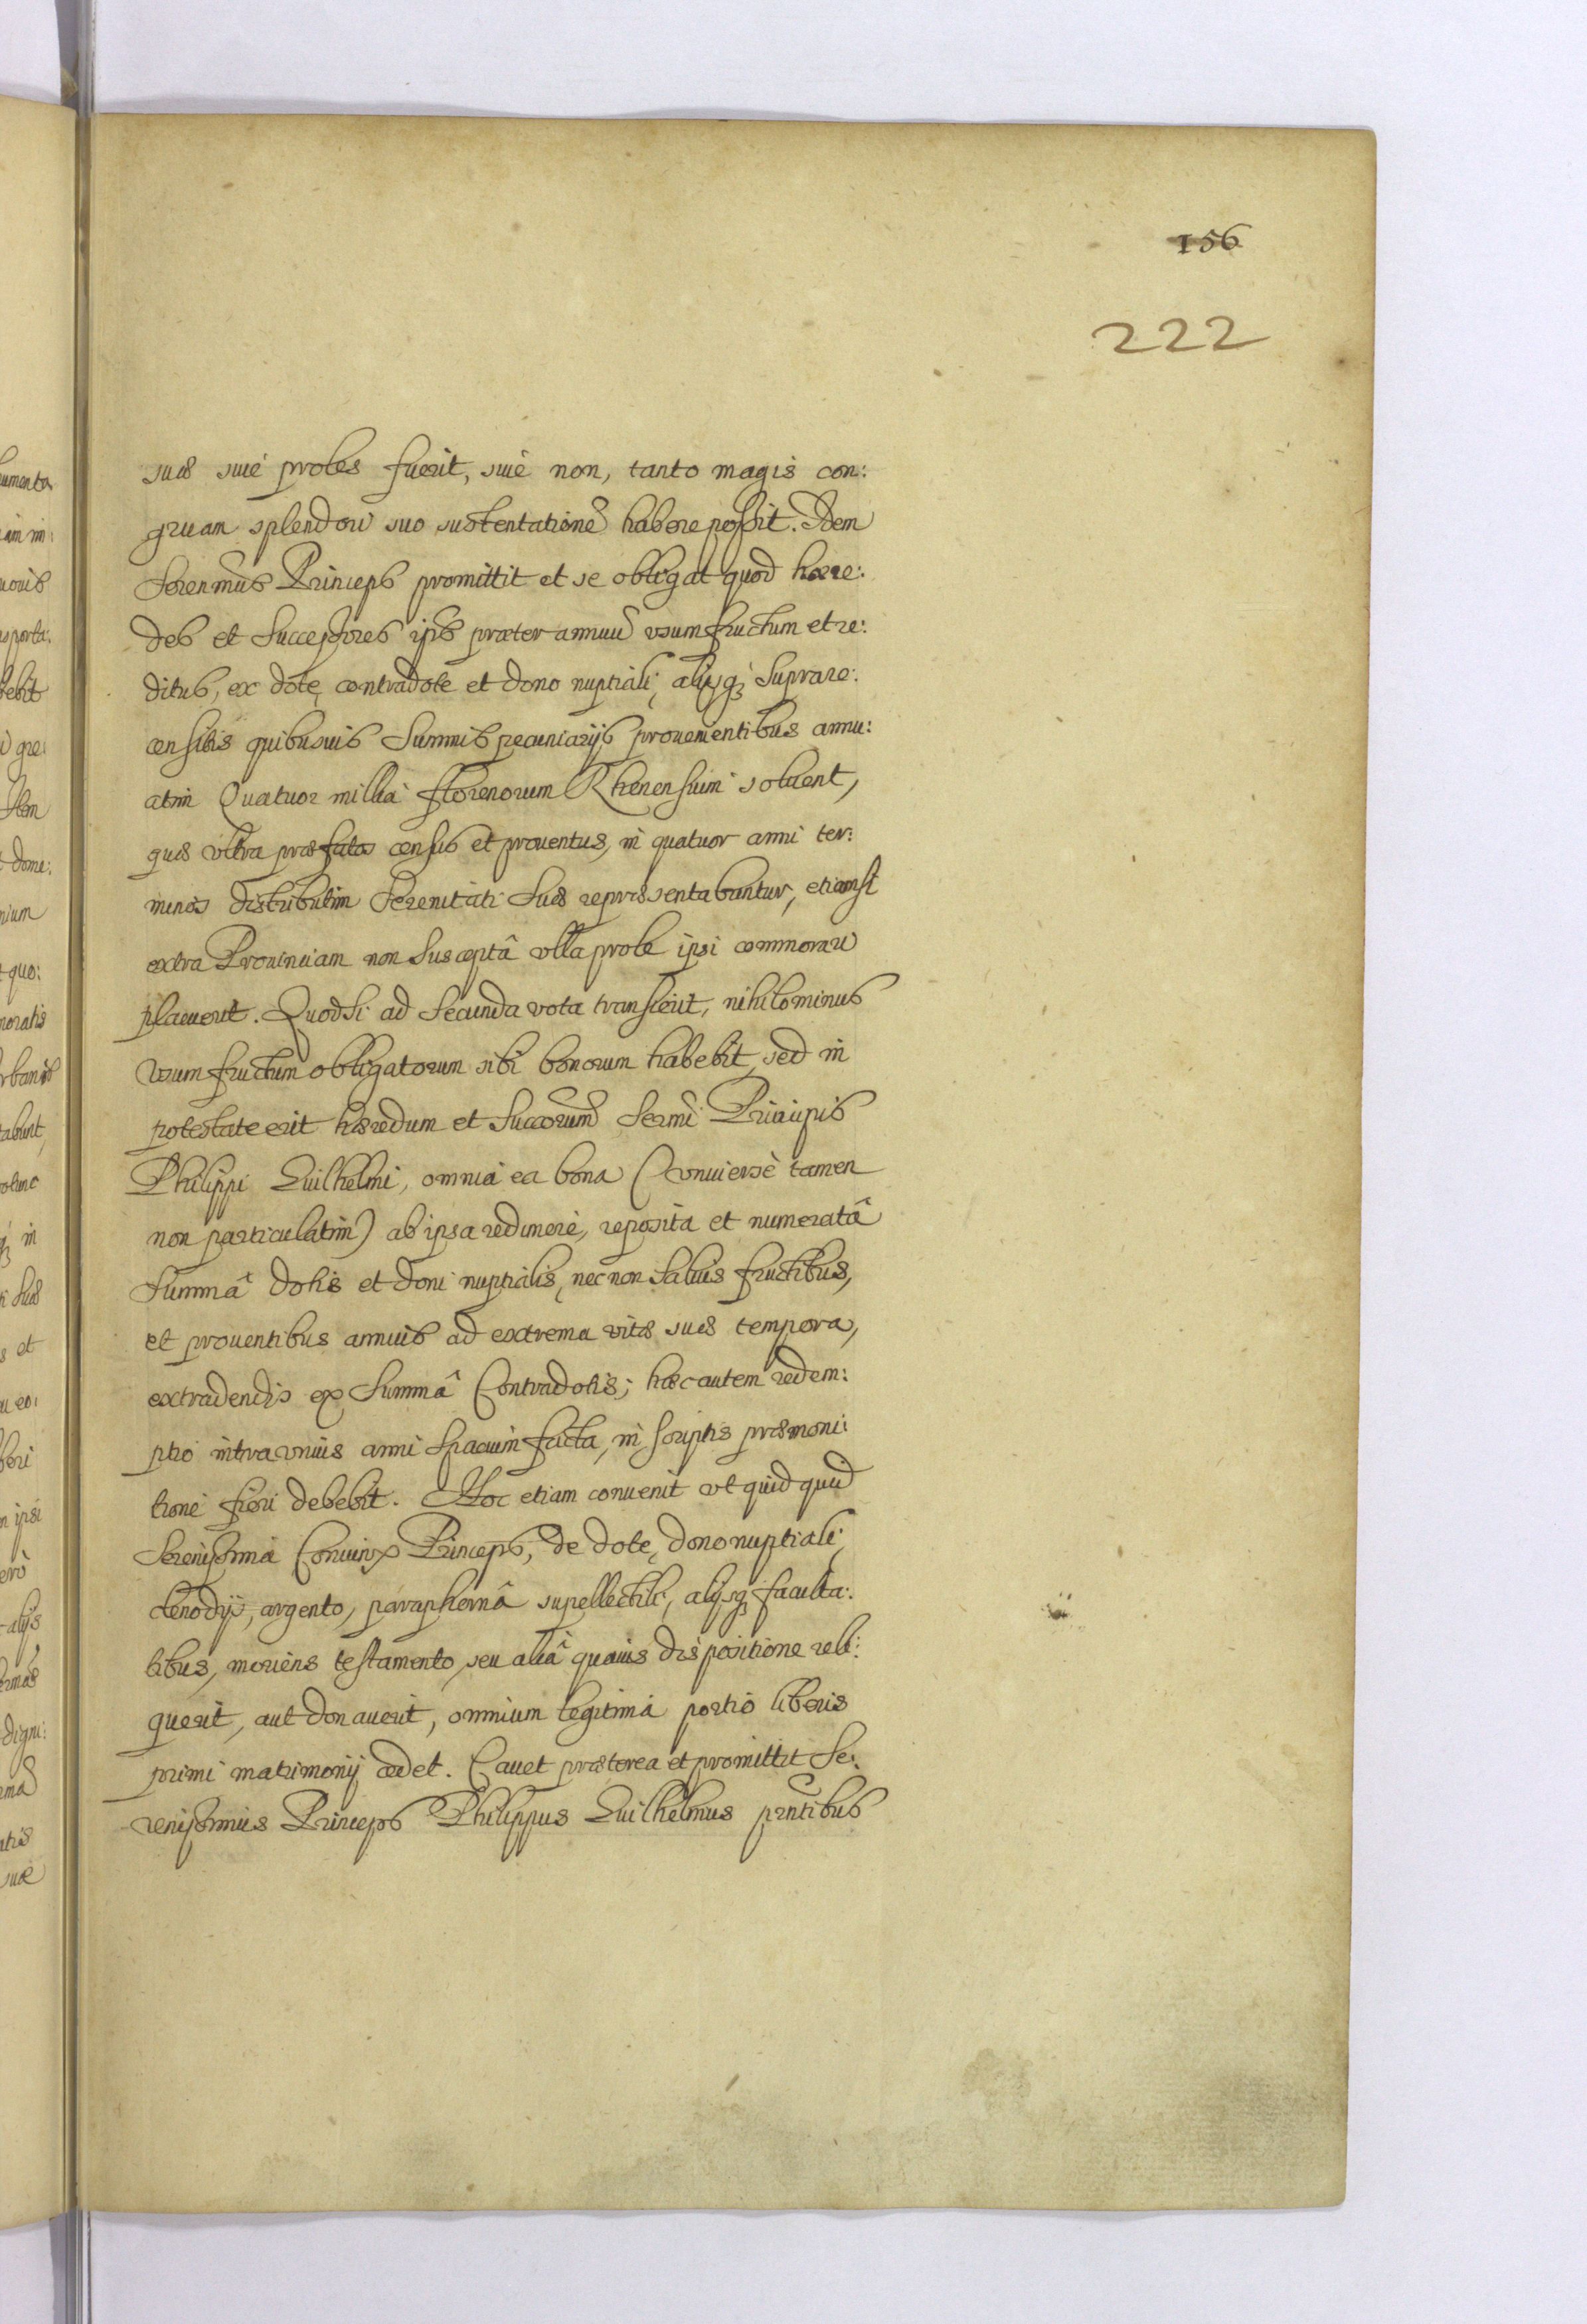 156
222
suæ siué proles fuerit, siué non, tanto magis con:
gruam splendori suo sustentationẽ habere possit. Idem
Serenmũs Princeps promittit et se obligat quod hære:
des et Successores ipsˢ præter annuũ usumfructum et re:
ditus, ex dote, contradote et dono nuptiali, alijsq́ supra re:
censitis quibusuis Summis pecuniarijs prouenientibus annu:
atim Quatuor millia florenorum Rhenensium soluent,
quæ vltra præfatos census et prouentus, in quatuor anni ter:
minos distributim Serenitati Suæ repræsentabuntur, etiamsi
extra Prouinciam non Susceptâ vlla prole ipsi commorari
placuerit. Quodsi ad Secunda vota transierit, nihilominus
usumfructum obligatorum sibi bonorum habebit, sed in
potestate erit hæredum et Succorum̃ Sermĩ Principis
Philippi Guilhelmi, omnia ea bona (vniuersè tamen
non particulatim) ab ipsa redimere, reposita et numeratâ
Summâ dotis et doni nuptialis, nec non Saluis fructibus,
et prouentibus annuis ad extrema vitæ suæ tempora,
extradendis ex Summâ Contradotis; hæc autem redem:
ptio intra vnius anni Spacium facta, in scriptis præmoni:
tione fieri debebit. Hoc etiam conuenit vt quidquid
Serenissima Coniunx Princeps, de dote, dono nuptiali,
clenodijs, argento, paraphernâ supellectili, alijsq́ faculta:
tibus, moriens testamento, seu aliâ quauis dispositione reli:
querit, aut donauerit, omnium legitima portio liberis
primi matrimonij cedet. Cauet præterea et promittit Se:
renissimus Princeps Philippus Guilhelmus prntibus